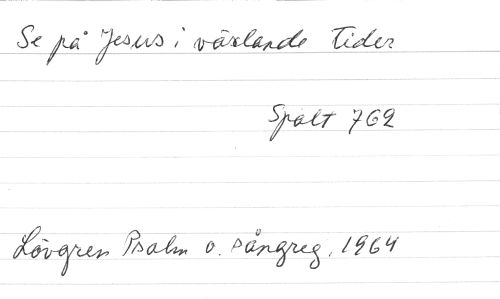 Se på Jesus i växlande tider
Spalt 762
Lövgren Psalm o. sångreg. 1964